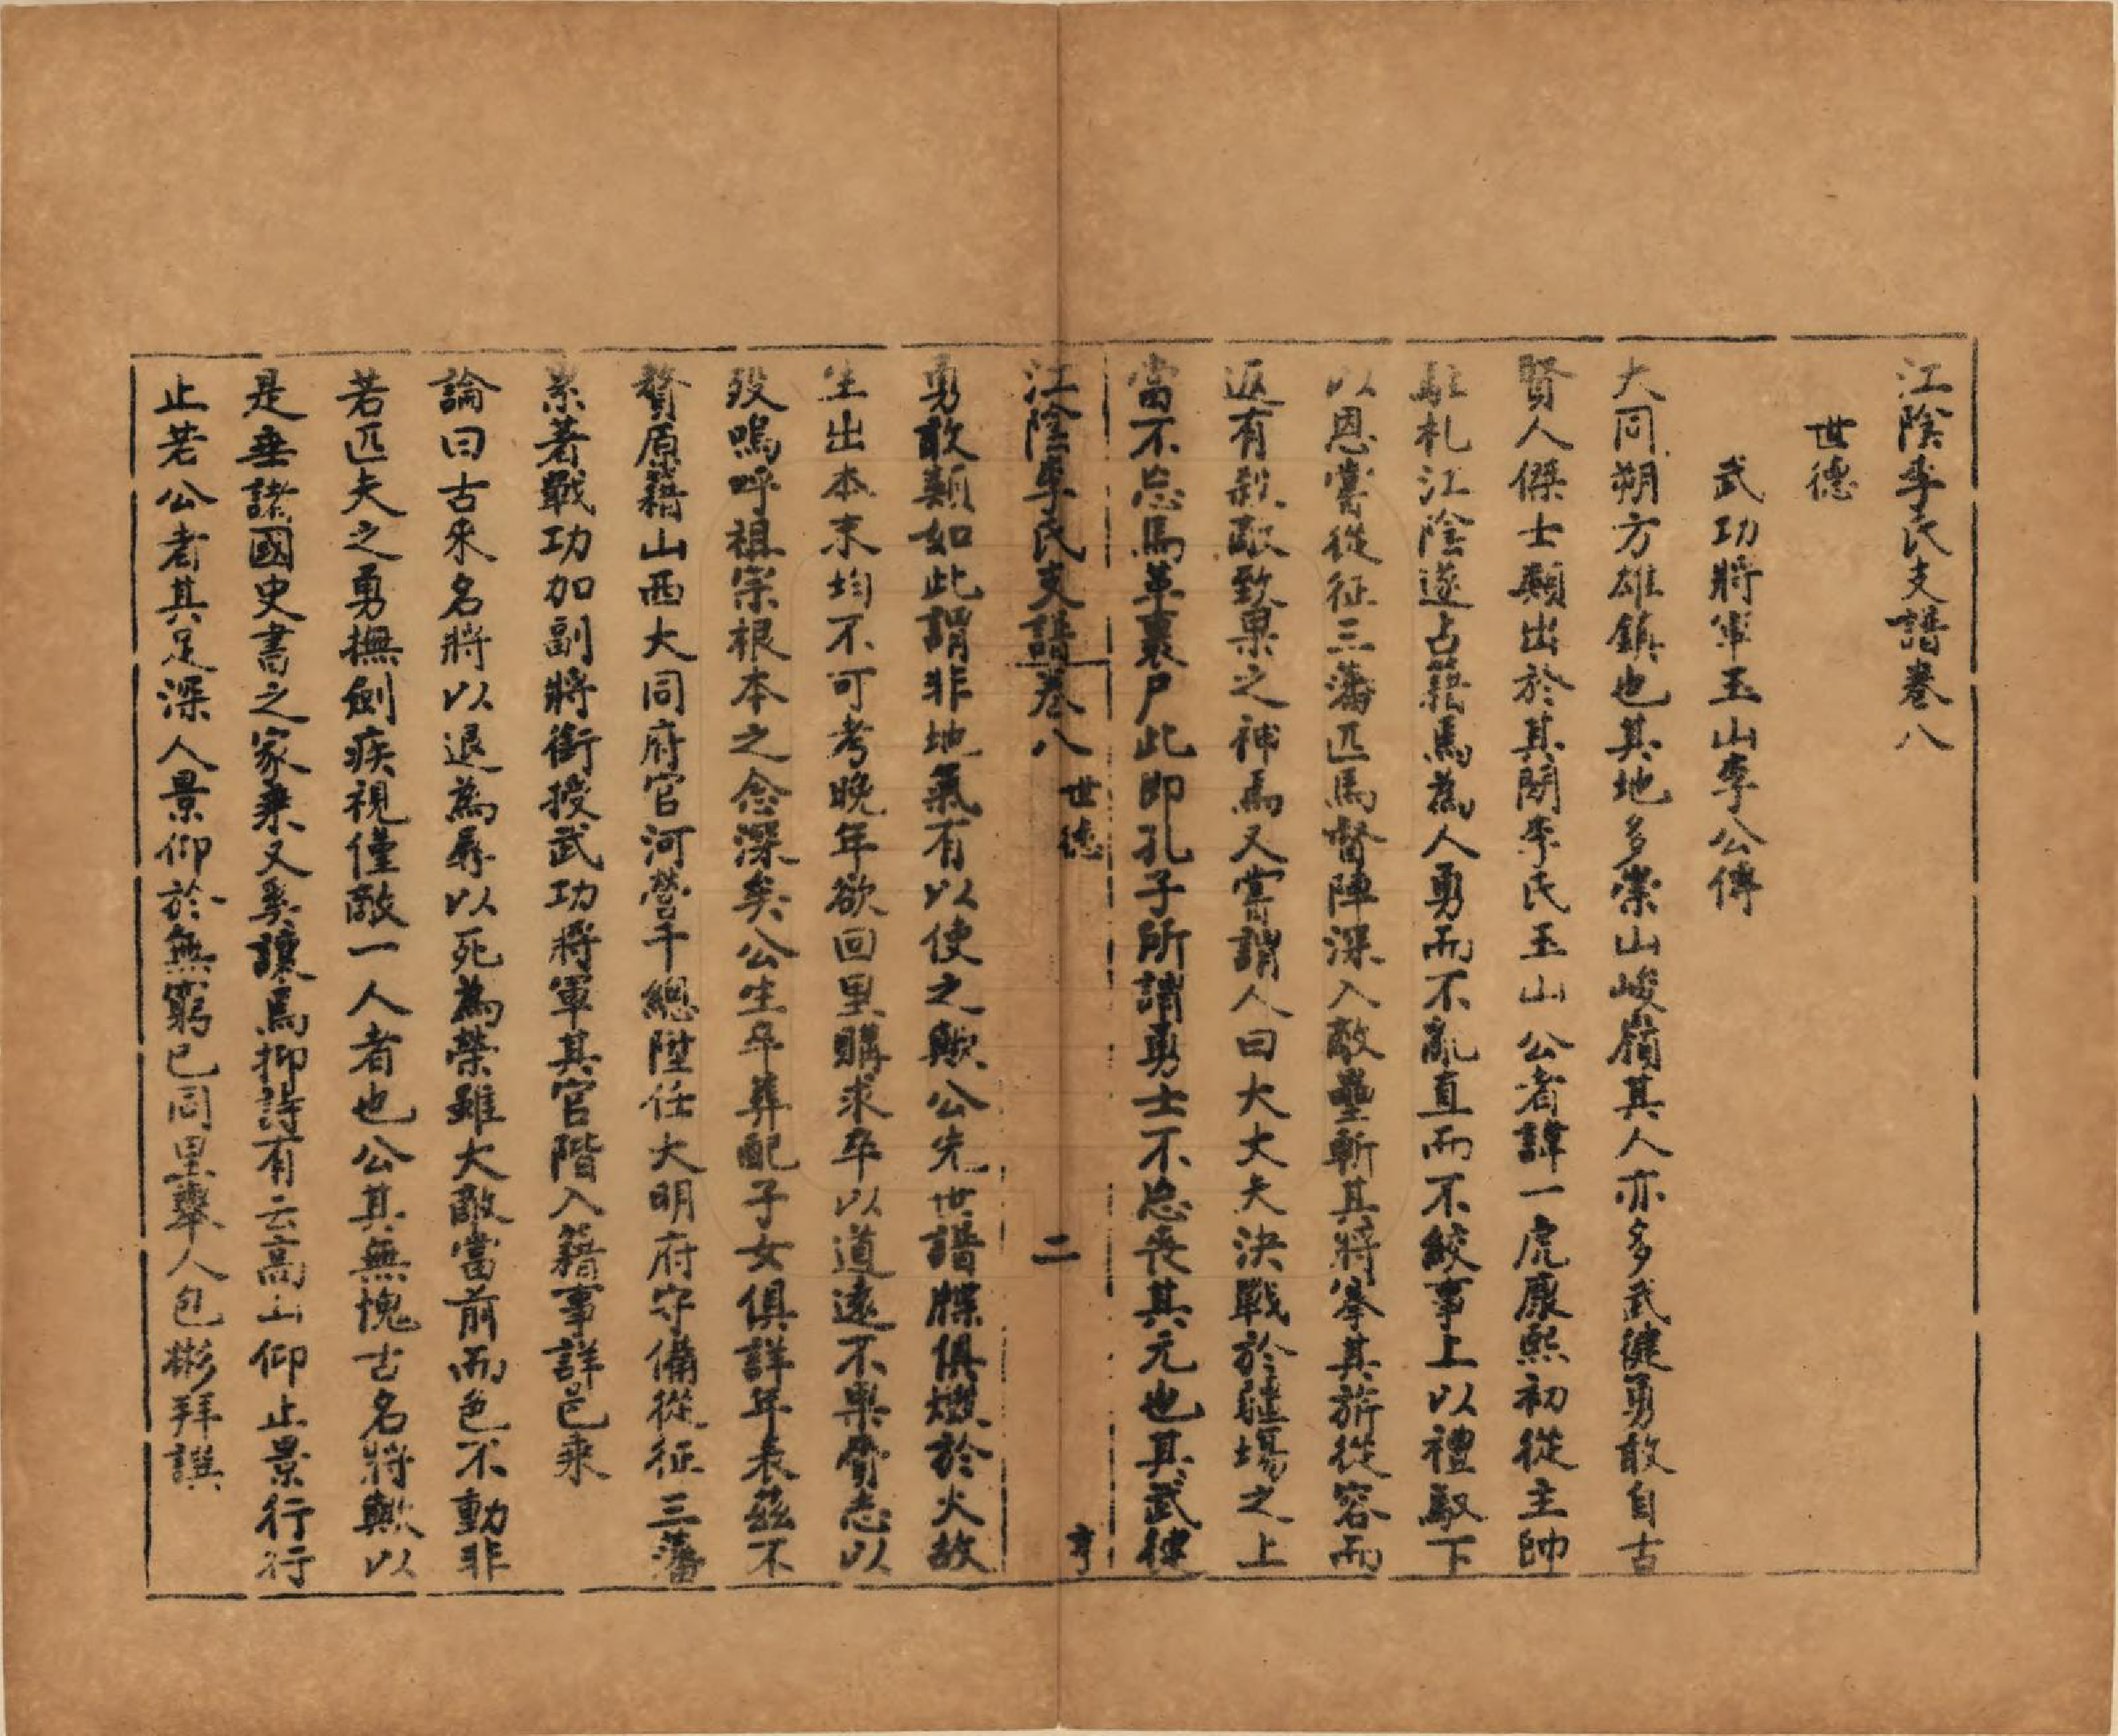 江陰李氏支譜卷八
世德
武功將軍玉山李公傳
大同朔方雄鎮也其地多崇山峻嶺其人亦多武健勇敢自古
賢人傑士類出於其間李氏玉山公者諱一虎康熙初從主帥
駐札江陰遂占籍焉為人勇而不亂直而不絞事上以禮馭下
以恩嘗從征三藩匹馬督陣深入敵壘斬其將搴其旂從容而
返有殺敵致果之神焉又嘗謂人曰大丈夫決戰於疆場之上
當不忘馬革裹尸此即孔子所謂勇士不忘喪其元也其武健
江陰李氏支譜卷八 世德 二 亨
勇敢類如此謂非地氣有以使之歟公先世譜牒俱燬於火故
生出本末均不可考晚年欲回里購求卒以道遠不果齎志以
歿嗚呼祖宗根本之念深矣公生卒葬配子女俱詳年表茲不
贅原籍山西大同府官河營千總陞任大明府守備從征三藩
累著戰功加副將銜授武功將軍其官階入籍事詳邑乘
論曰古來名將以退為辱以死為榮雖大敵當前而色不動非
若匹夫之勇撫劍疾視僅敵一人者也公其無愧古名將歟以
是垂諸國史書之家乘又奚讓焉抑詩有云高山仰止景行行
止若公者其足深人景仰於無窮已同里舉人包彬拜譔